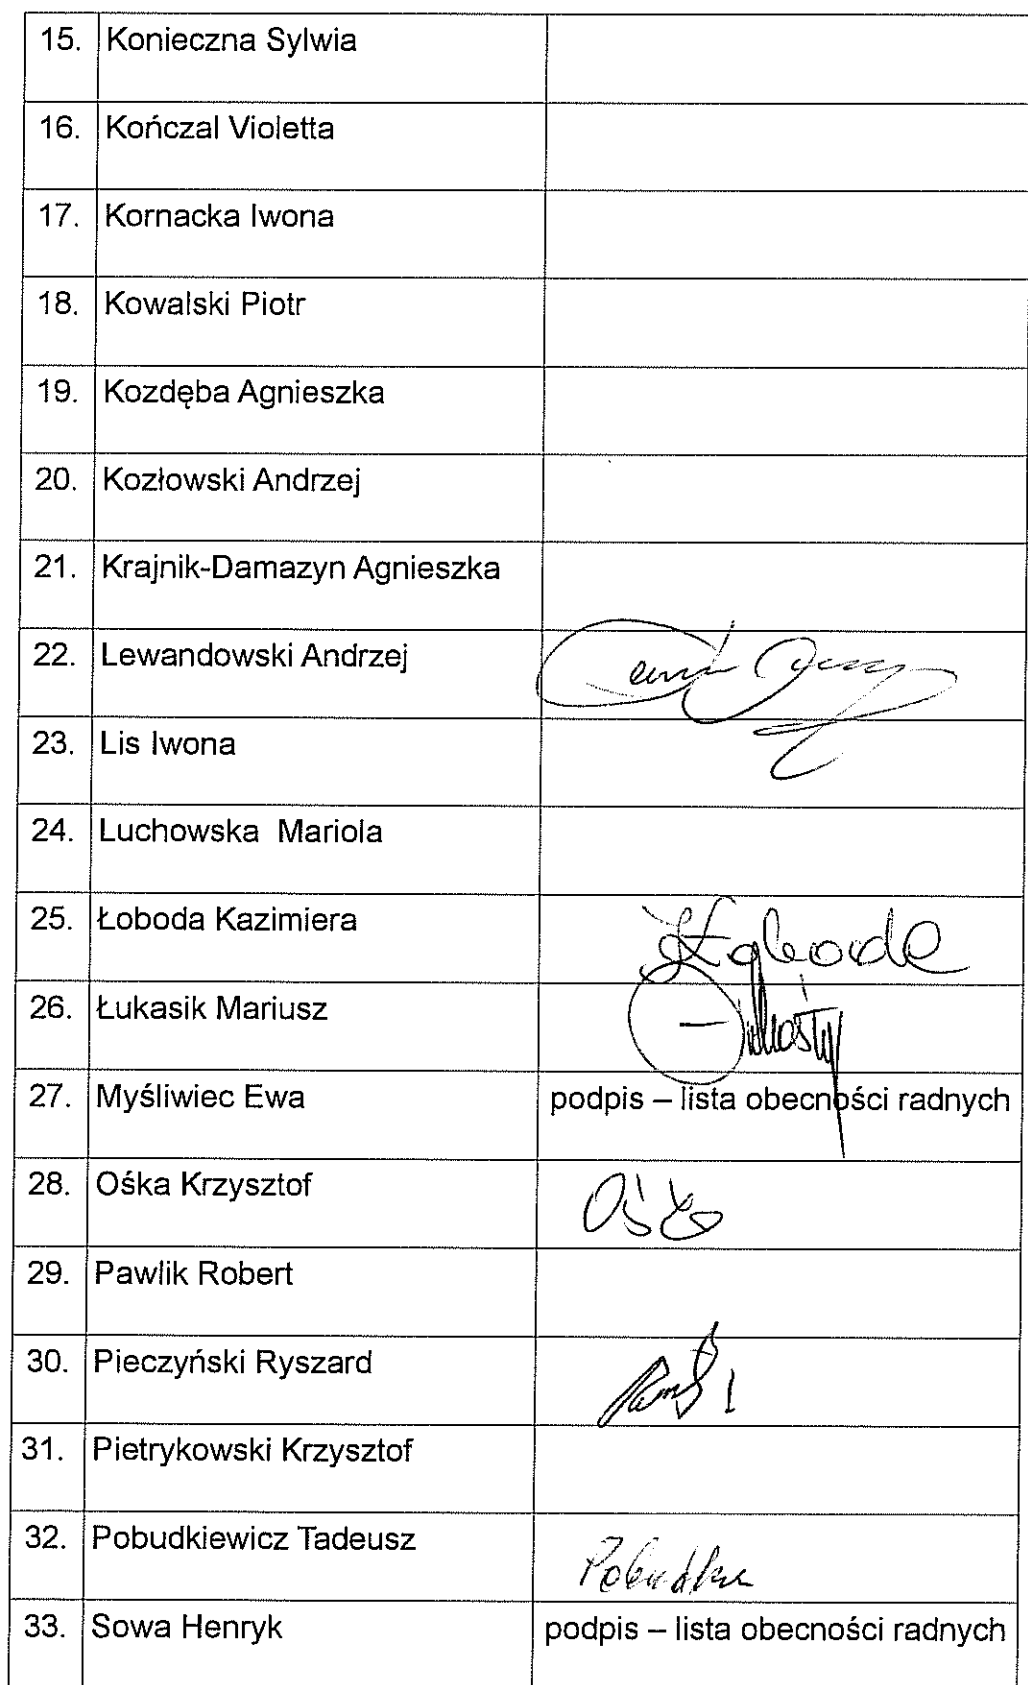 15. Konieczna Sylwia
16. Kończal Violetta
17. Kornacka Iwona
18. Kowalski Piotr
19. Kozdęba Agnieszka
20. Kozłowski Andrzej
21. Krajnik-Damazyn Agnieszka
22. Lewandowski Andrzej
23. Lis Iwona
24. Luchowska Mariola
25. Łoboda Kazimiera
26. Łukasik Mariusz
27. Myśliwiec Ewa podpis – lista obecności radnych
28. Ośka Krzysztof Ośka
29. Pawlik Robert
30. Pieczyński Ryszard
31. Pietrykowski Krzysztof
32. Pobudkiewicz Tadeusz
33. Sowa Henryk podpis – lista obecności radnych